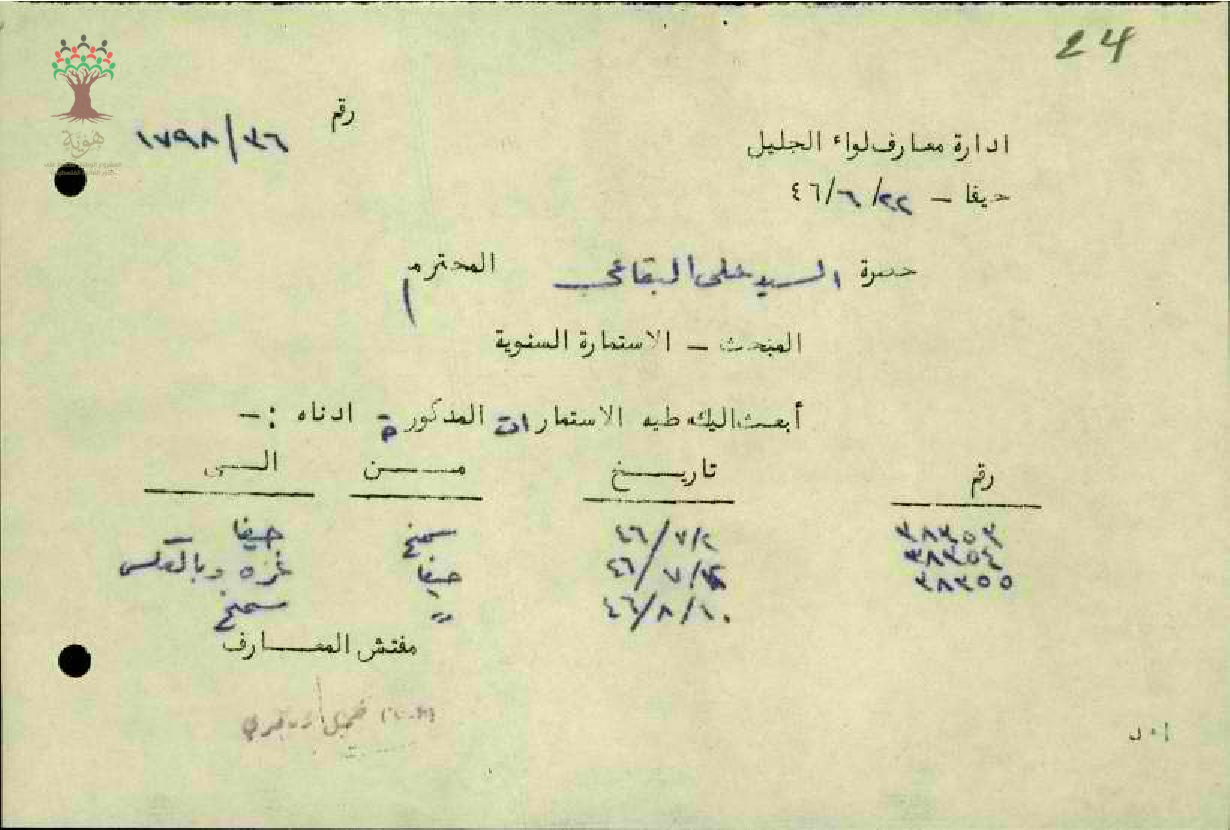 24
رقم
١٧٩٨/٣٦
هوية
ادارة معارف لواء الجليل
حيفا – ٤٦/٦/٢٢
حضرة السيد علي البقاعي المحترم
المبحث – الاستمارة السنوية
أبعث اليك طيه الاستمارات المذكورة ادناه :–
رقم تاريخ من الى
٣٨٣٥٣ ٤٦/٧/٢ سمخ حيفا
٣٨٣٥٤ ٤٦/٧/ حيفا غزه وبالعكس
٣٨٣٥٥ ٤٦/٨/١٠ " سمخ
مفتش المعارف